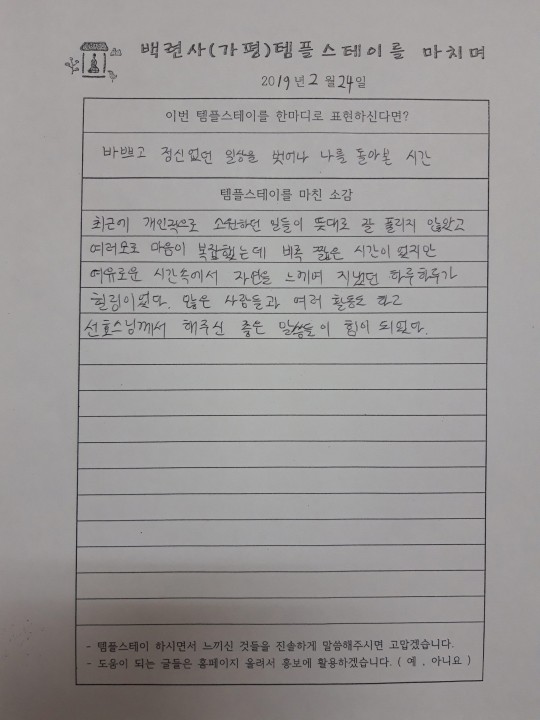 백련사(가평)템플스테이를 마치며
2019년 2월 24일
이번 템플스테이를 한마디로 표현하신다면?
바쁘고 정신없던 일상을 벗어나 나를 돌아본 시간
템플스테이를 마친 소감
최근에 개인적으로 소원하던 일들이 뜻대로 잘 풀리지 않았고
여러모로 마음이 복잡했는데 비록 짧은 시간이었지만
여유로운 시간속에서 자연을 느끼며 지냈던 하루하루가
힐링이었다. 많은 사람들과 여러 활동도 하고
선효스님께서 해주신 좋은 말씀들이 힘이 되었다.
- 템플스테이 하시면서 느끼신 것들을 진솔하게 말씀해주시면 고맙겠습니다.
- 도움이 되는 글들은 홈페이지 올려서 홍보에 활용하겠습니다. ( 예 , 아니요 )